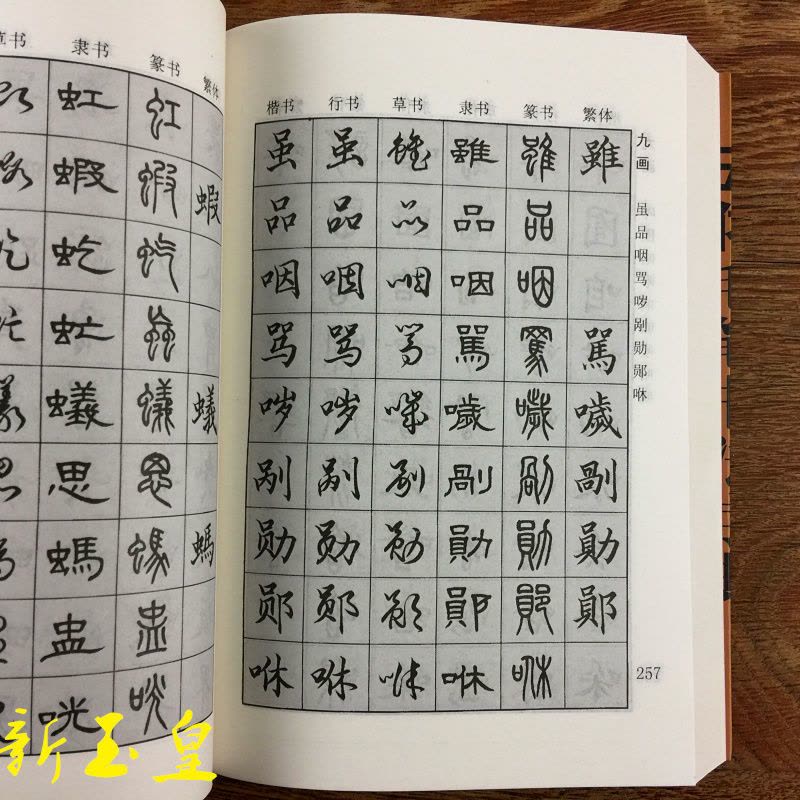 草书 隶书 篆书 繁体
虹 虹
蝦 蝦 蝦
虼 虼
虻 虻
蟻 蟻 蟻
思 思
螞 螞 螞
盅 盅
咣 咣
楷书 行书 草书 隶书 篆书 繁体
虽 虽 雖 雖 雖 雖
品 品 品 品 品
咽 咽 咽 咽 咽
骂 骂 骂 駡 駡 駡
哕 哕 噦 噦 噦 噦
剐 剐 剐 剮 剮 剮
勋 勋 勋 勛 勛 勛
郧 郧 郧 鄖 鄖 鄖
咻 咻 咻 咻 咻
九画 虽品咽骂哕剐勋郧咻
257
新玉皇